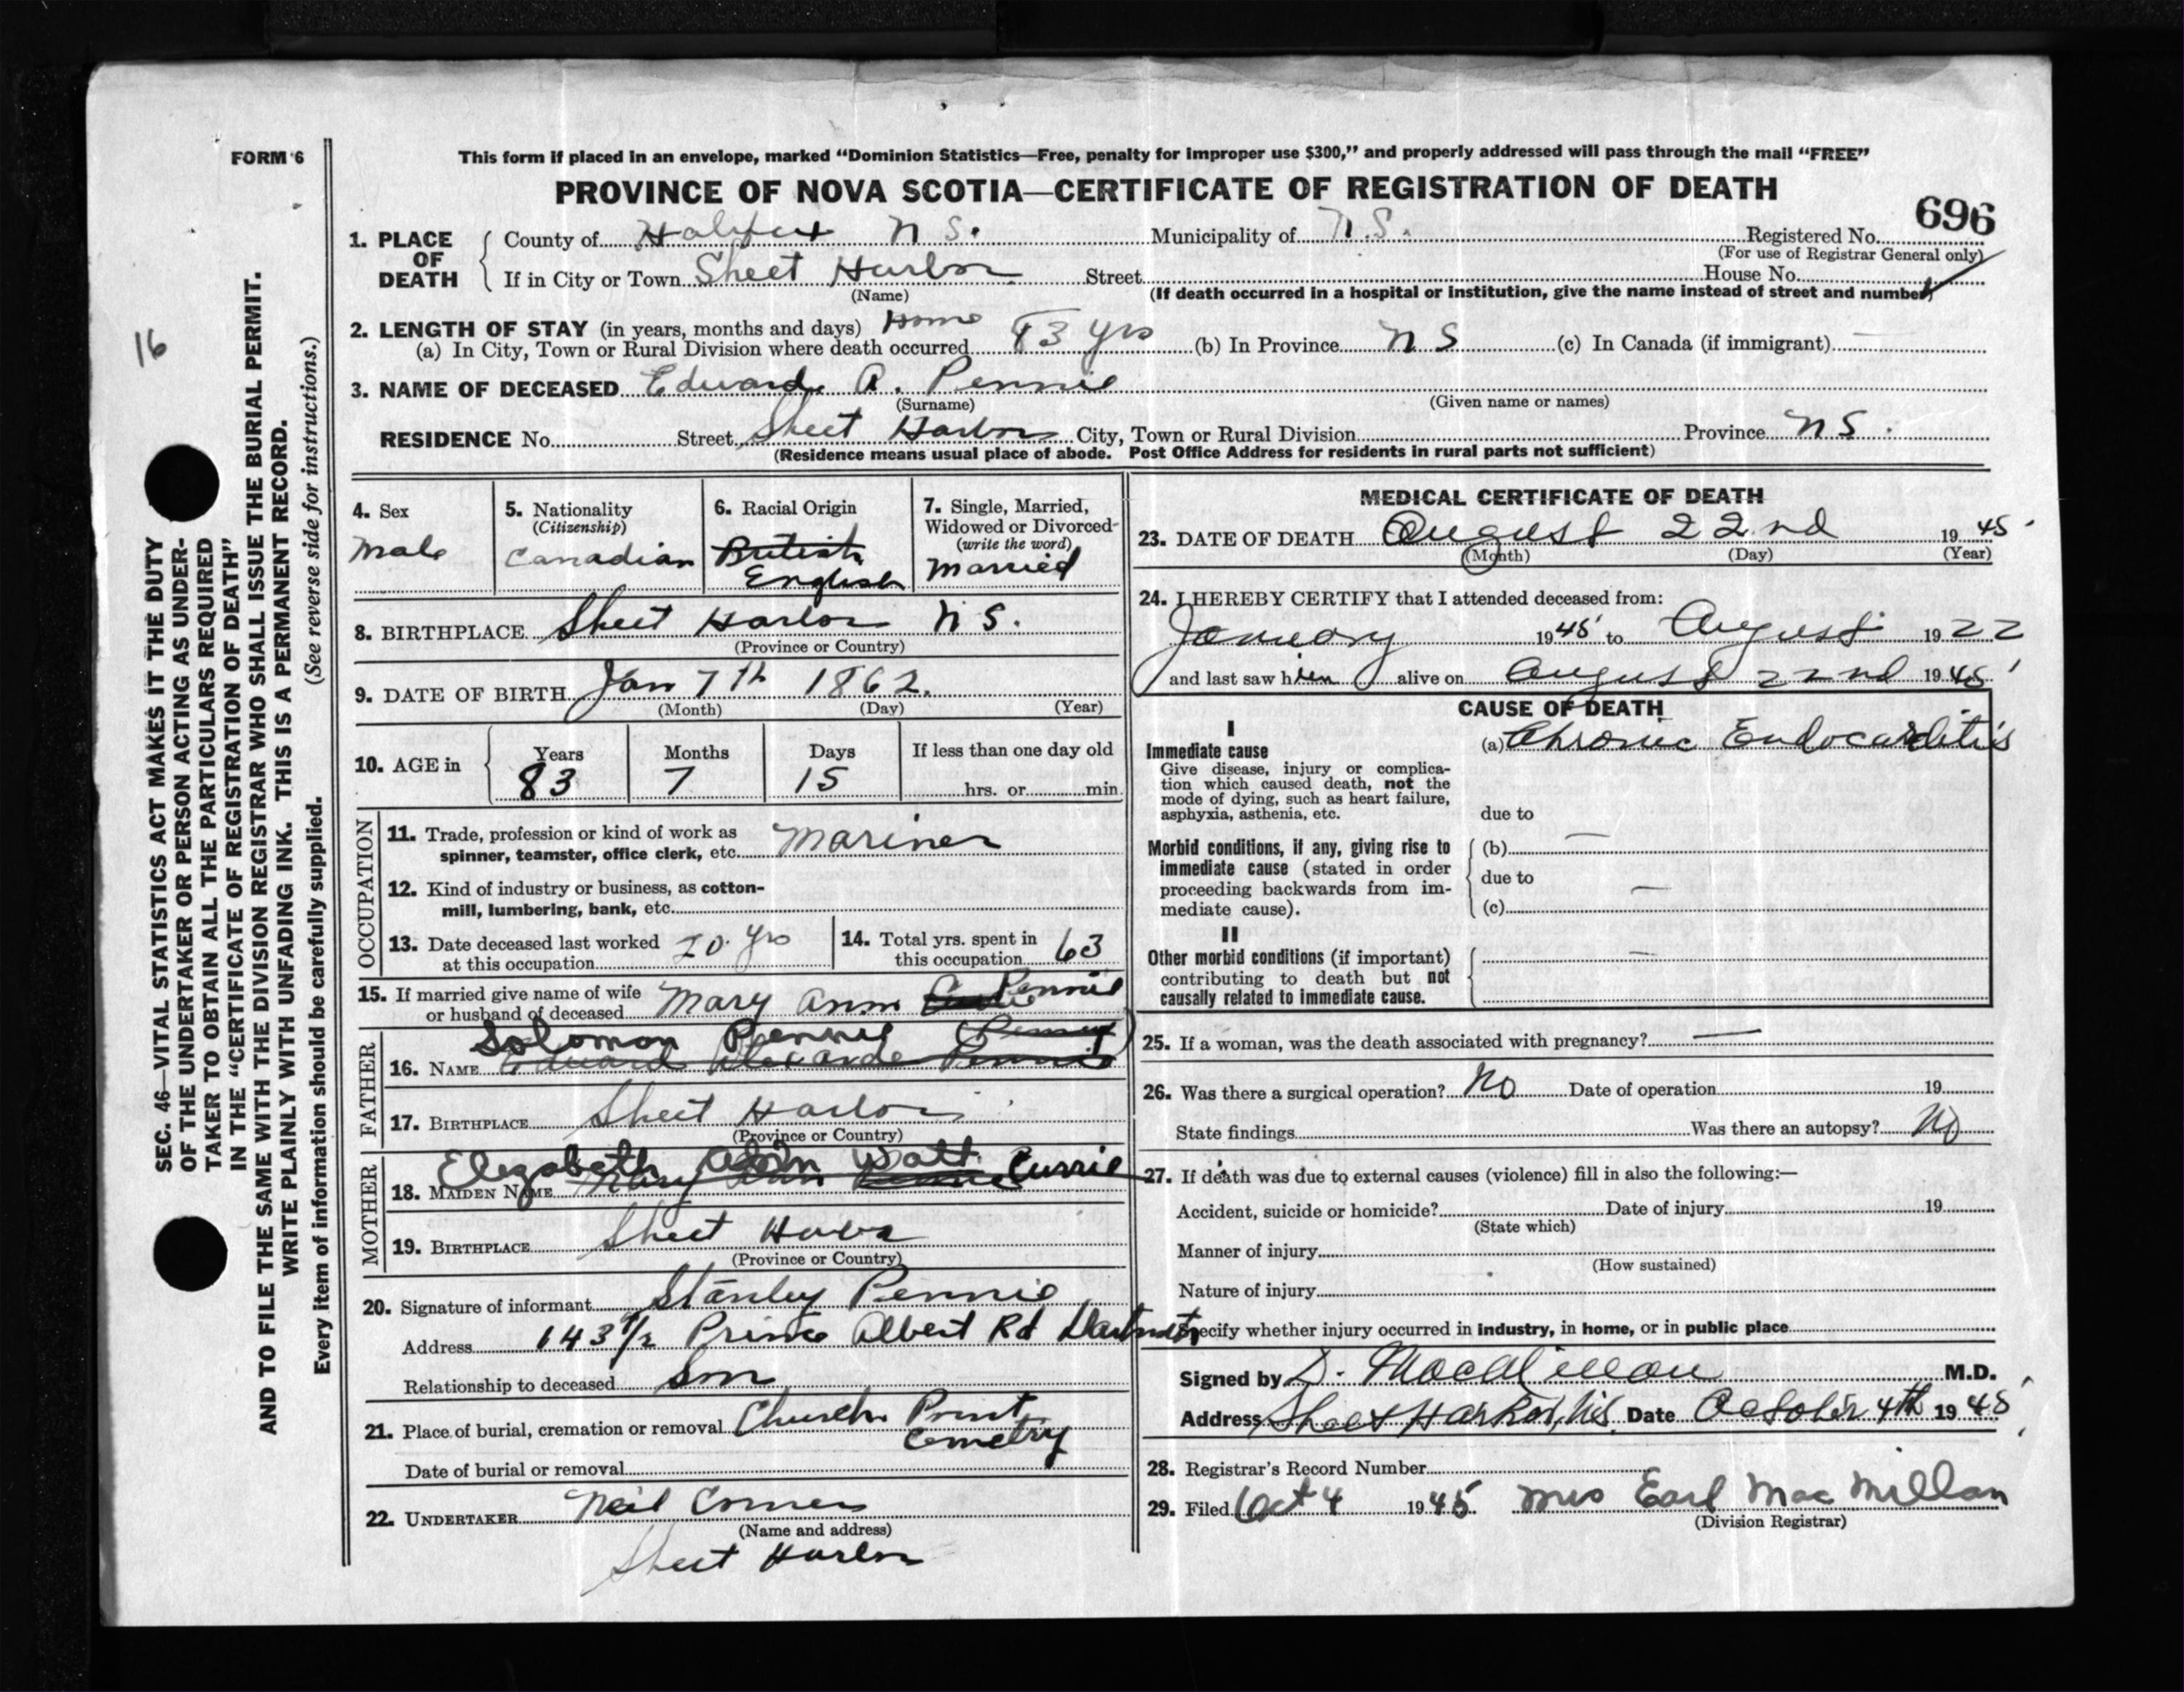 FORM 6
This form if placed in an envelope, marked "Dominion Statistics—Free, penalty for improper use $300," and properly addressed will pass through the mail "FREE"
PROVINCE OF NOVA SCOTIA—CERTIFICATE OF REGISTRATION OF DEATH
696
1. PLACE OF DEATH
County of Halifax N S. Municipality of N.S. Registered No.
(For use of Registrar General only)
If in City or Town Sheet Harbor Street House No.
(Name) (If death occurred in a hospital or institution, give the name instead of street and number)
2. LENGTH OF STAY (in years, months and days) Home
(a) In City, Town or Rural Division where death occurred 83 yrs (b) In Province N S (c) In Canada (if immigrant) —
3. NAME OF DECEASED Edward A. Pennie
(Surname) (Given name or names)
RESIDENCE No. Street Sheet Harbor City, Town or Rural Division Province N S.
(Residence means usual place of abode. Post Office Address for residents in rural parts not sufficient)
4. Sex
Male
5. Nationality
(Citizenship)
Canadian
6. Racial Origin
British
English
7. Single, Married,
Widowed or Divorced
(write the word)
Married
8. BIRTHPLACE Sheet Harbor N S.
(Province or Country)
9. DATE OF BIRTH Jan 7th 1862.
(Month) (Day) (Year)
10. AGE in
Years Months Days If less than one day old
83 7 15 hrs. or min.
OCCUPATION
11. Trade, profession or kind of work as
spinner, teamster, office clerk, etc. Mariner
12. Kind of industry or business, as cotton-
mill, lumbering, bank, etc.
13. Date deceased last worked
at this occupation 20 yrs
14. Total yrs. spent in
this occupation 63
15. If married give name of wife
or husband of deceased Mary Ann Pennie
FATHER
Solomon Pennie
16. NAME Edward Alexande Pennie
17. BIRTHPLACE Sheet Harbor
(Province or Country)
MOTHER
Elezabeth Ann Watt Currie
18. MAIDEN NAME Mary Ann Pennie
19. BIRTHPLACE Sheet Habr
(Province or Country)
20. Signature of informant Stanley Pennie
Address 143 1/2 Prince Albert Rd Dartmoth
Relationship to deceased Son
21. Place of burial, cremation or removal Church Point
Cemetry
Date of burial or removal
22. UNDERTAKER Neil Conners
(Name and address)
Sheet Harbor
MEDICAL CERTIFICATE OF DEATH
23. DATE OF DEATH August 22nd 1945
(Month) (Day) (Year)
24. I HEREBY CERTIFY that I attended deceased from:
January 1945 to August 1922
and last saw him alive on August 22nd 1945
CAUSE OF DEATH
I
Immediate cause
Give disease, injury or complica-
tion which caused death, not the
mode of dying, such as heart failure,
asphyxia, asthenia, etc.
(a) Chronic Endocarditis
due to
Morbid conditions, if any, giving rise to
immediate cause (stated in order
proceeding backwards from im-
mediate cause).
(b) —
due to
(c) —
II
Other morbid conditions (if important)
contributing to death but not
causally related to immediate cause.
—
25. If a woman, was the death associated with pregnancy? —
26. Was there a surgical operation? No Date of operation 19
State findings Was there an autopsy? No
27. If death was due to external causes (violence) fill in also the following:—
Accident, suicide or homicide? Date of injury 19
(State which)
Manner of injury
(How sustained)
Nature of injury
Specify whether injury occurred in industry, in home, or in public place
Signed by D. MacMillan M.D.
Address Sheet Harbor, N.S. Date October 4th 1945
28. Registrar's Record Number
29. Filed Oct 4 1945 Mrs Earl MacMillan
(Division Registrar)
16
SEC. 46—VITAL STATISTICS ACT MAKES IT THE DUTY
OF THE UNDERTAKER OR PERSON ACTING AS UNDER-
TAKER TO OBTAIN ALL THE PARTICULARS REQUIRED
IN THE "CERTIFICATE OF REGISTRATION OF DEATH"
AND TO FILE THE SAME WITH THE DIVISION REGISTRAR WHO SHALL ISSUE THE BURIAL PERMIT.
WRITE PLAINLY WITH UNFADING INK. THIS IS A PERMANENT RECORD.
Every item of information should be carefully supplied. (See reverse side for instructions.)